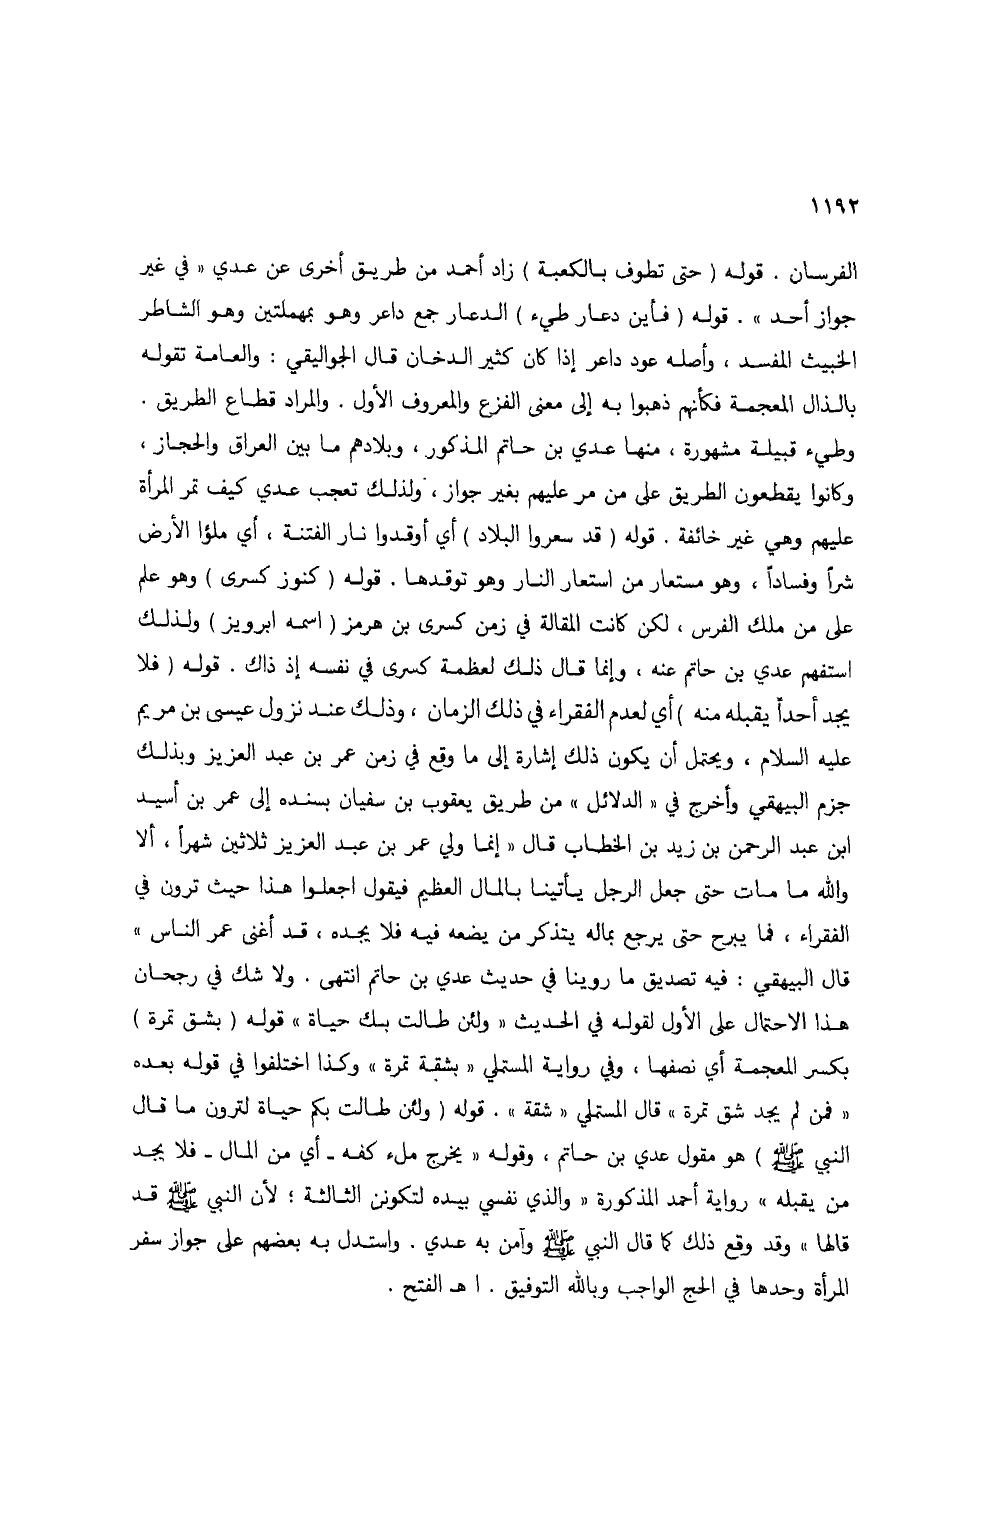 ١١٩٢
الفرسان . قوله ( حتى تطوف بالكعبة ) زاد أحمد من طريق أخرى عن عدي « في غير
جواز أحد » . قوله ( فأين دعار طيء ) الدعار جمع داعر وهو بمهملتين وهو الشاطر
الخبيث المفسد ، وأصله عود داعر إذا كان كثير الدخان قال الجواليقي : والعامة تقوله
بالذال المعجمة فكأنهم ذهبوا به إلى معنى الفزع والمعروف الأول . والمراد قطاع الطريق .
وطيء قبيلة مشهورة ، منها عدي بن حاتم المذكور ، وبلادهم ما بين العراق والحجاز ،
وكانوا يقطعون الطريق على من مر عليهم بغير جواز ، ولذلك تعجب عدي كيف تمر المرأة
عليهم وهي غير خائفة . قوله ( قد سعروا البلاد ) أي أوقدوا نار الفتنة ، أي ملؤا الأرض
شراً وفساداً ، وهو مستعار من استعار النار وهو توقدها . قوله ( كنوز كسرى ) وهو علم
على من ملك الفرس ، لكن كانت المقالة في زمن كسرى بن هرمز ( اسمه ابرويز ) ولذلك
استفهم عدي بن حاتم عنه ، وإنما قال ذلك لعظمة كسرى في نفسه إذ ذاك . قوله ( فلا
يجد أحداً يقبله منه ) أي لعدم الفقراء في ذلك الزمان ، وذلك عند نزول عيسى بن مريم
عليه السلام ، ويحتمل أن يكون ذلك إشارة إلى ما وقع في زمن عمر بن عبد العزيز وبذلك
جزم البيهقي وأخرج في « الدلائل » من طريق يعقوب بن سفيان بسنده إلى عمر بن أسيد
ابن عبد الرحمن بن زيد بن الخطاب قال « إنما ولي عمر بن عبد العزيز ثلاثين شهراً ، ألا
والله ما مات حتى جعل الرجل يأتينا بالمال العظيم فيقول اجعلوا هذا حيث ترون في
الفقراء ، فما يبرح حتى يرجع بماله يتذكر من يضعه فيه فلا يجده ، قد أغنى عمر الناس »
قال البيهقي : فيه تصديق ما روينا في حديث عدي بن حاتم انتهى . ولا شك في رجحان
هذا الاحتمال على الأول لقوله في الحديث « ولئن طالت بك حياة » قوله ( بشق تمرة )
بكسر المعجمة أي نصفها ، وفي رواية المستملي « بشقة تمرة » وكذا اختلفوا في قوله بعده
« فمن لم يجد شق تمرة » قال المستملي « شقة » . قوله ( ولئن طالت بكم حياة لترون ما قال
النبي ﷺ ) هو مقول عدي بن حاتم ، وقوله « يخرج ملء كفه ـ أي من المال ـ فلا يجد
من يقبله » رواية أحمد المذكورة « والذي نفسي بيده لتكونن الثالثة ؛ لأن النبي ﷺ قد
قالها » وقد وقع ذلك كما قال النبي ﷺ وآمن به عدي . واستدل به بعضهم على جواز سفر
المرأة وحدها في الحج الواجب وبالله التوفيق . ا هـ الفتح .